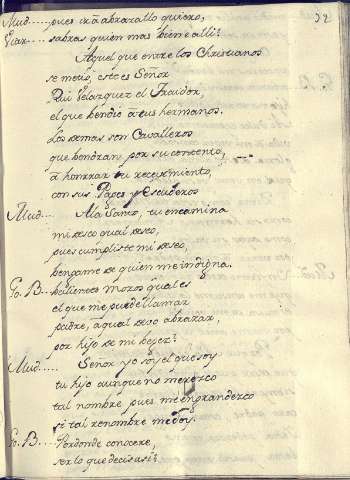 32
Mud..... pues irà abrazallo quiero,
Guar.... sabras quien mas bien e alli?
Aquel que entre los Christianos
se metio, este es Señor
Rui Velazquez el Traidor,
el que bendio à tus hermanos.
Los demas son Cavalleros
que hondran por su concento,
à honrrar tu recevimiento,
con sus Pajes y Escuderos
Mud.... Ala Santo, tu encamina
mi deseo qual deseo,
pues cumpliste mi deseo,
bengame de quien me indigna.
Go. B... balientes moros qual es
el que me puede llamar
padre, à qual devo abrazar,
por hijo de mi bejez?
Mud..... Señor yo soy el que soy
tu hijo aunque no merezco
tal nombre pues me engrandezco
si tal renombre me doy.
Go. B... Pordonde conocere,
ser lo que decis asi?